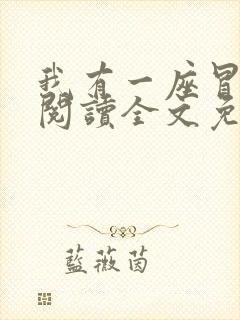 我有一座冒
閱讀全文免
藍薇茵